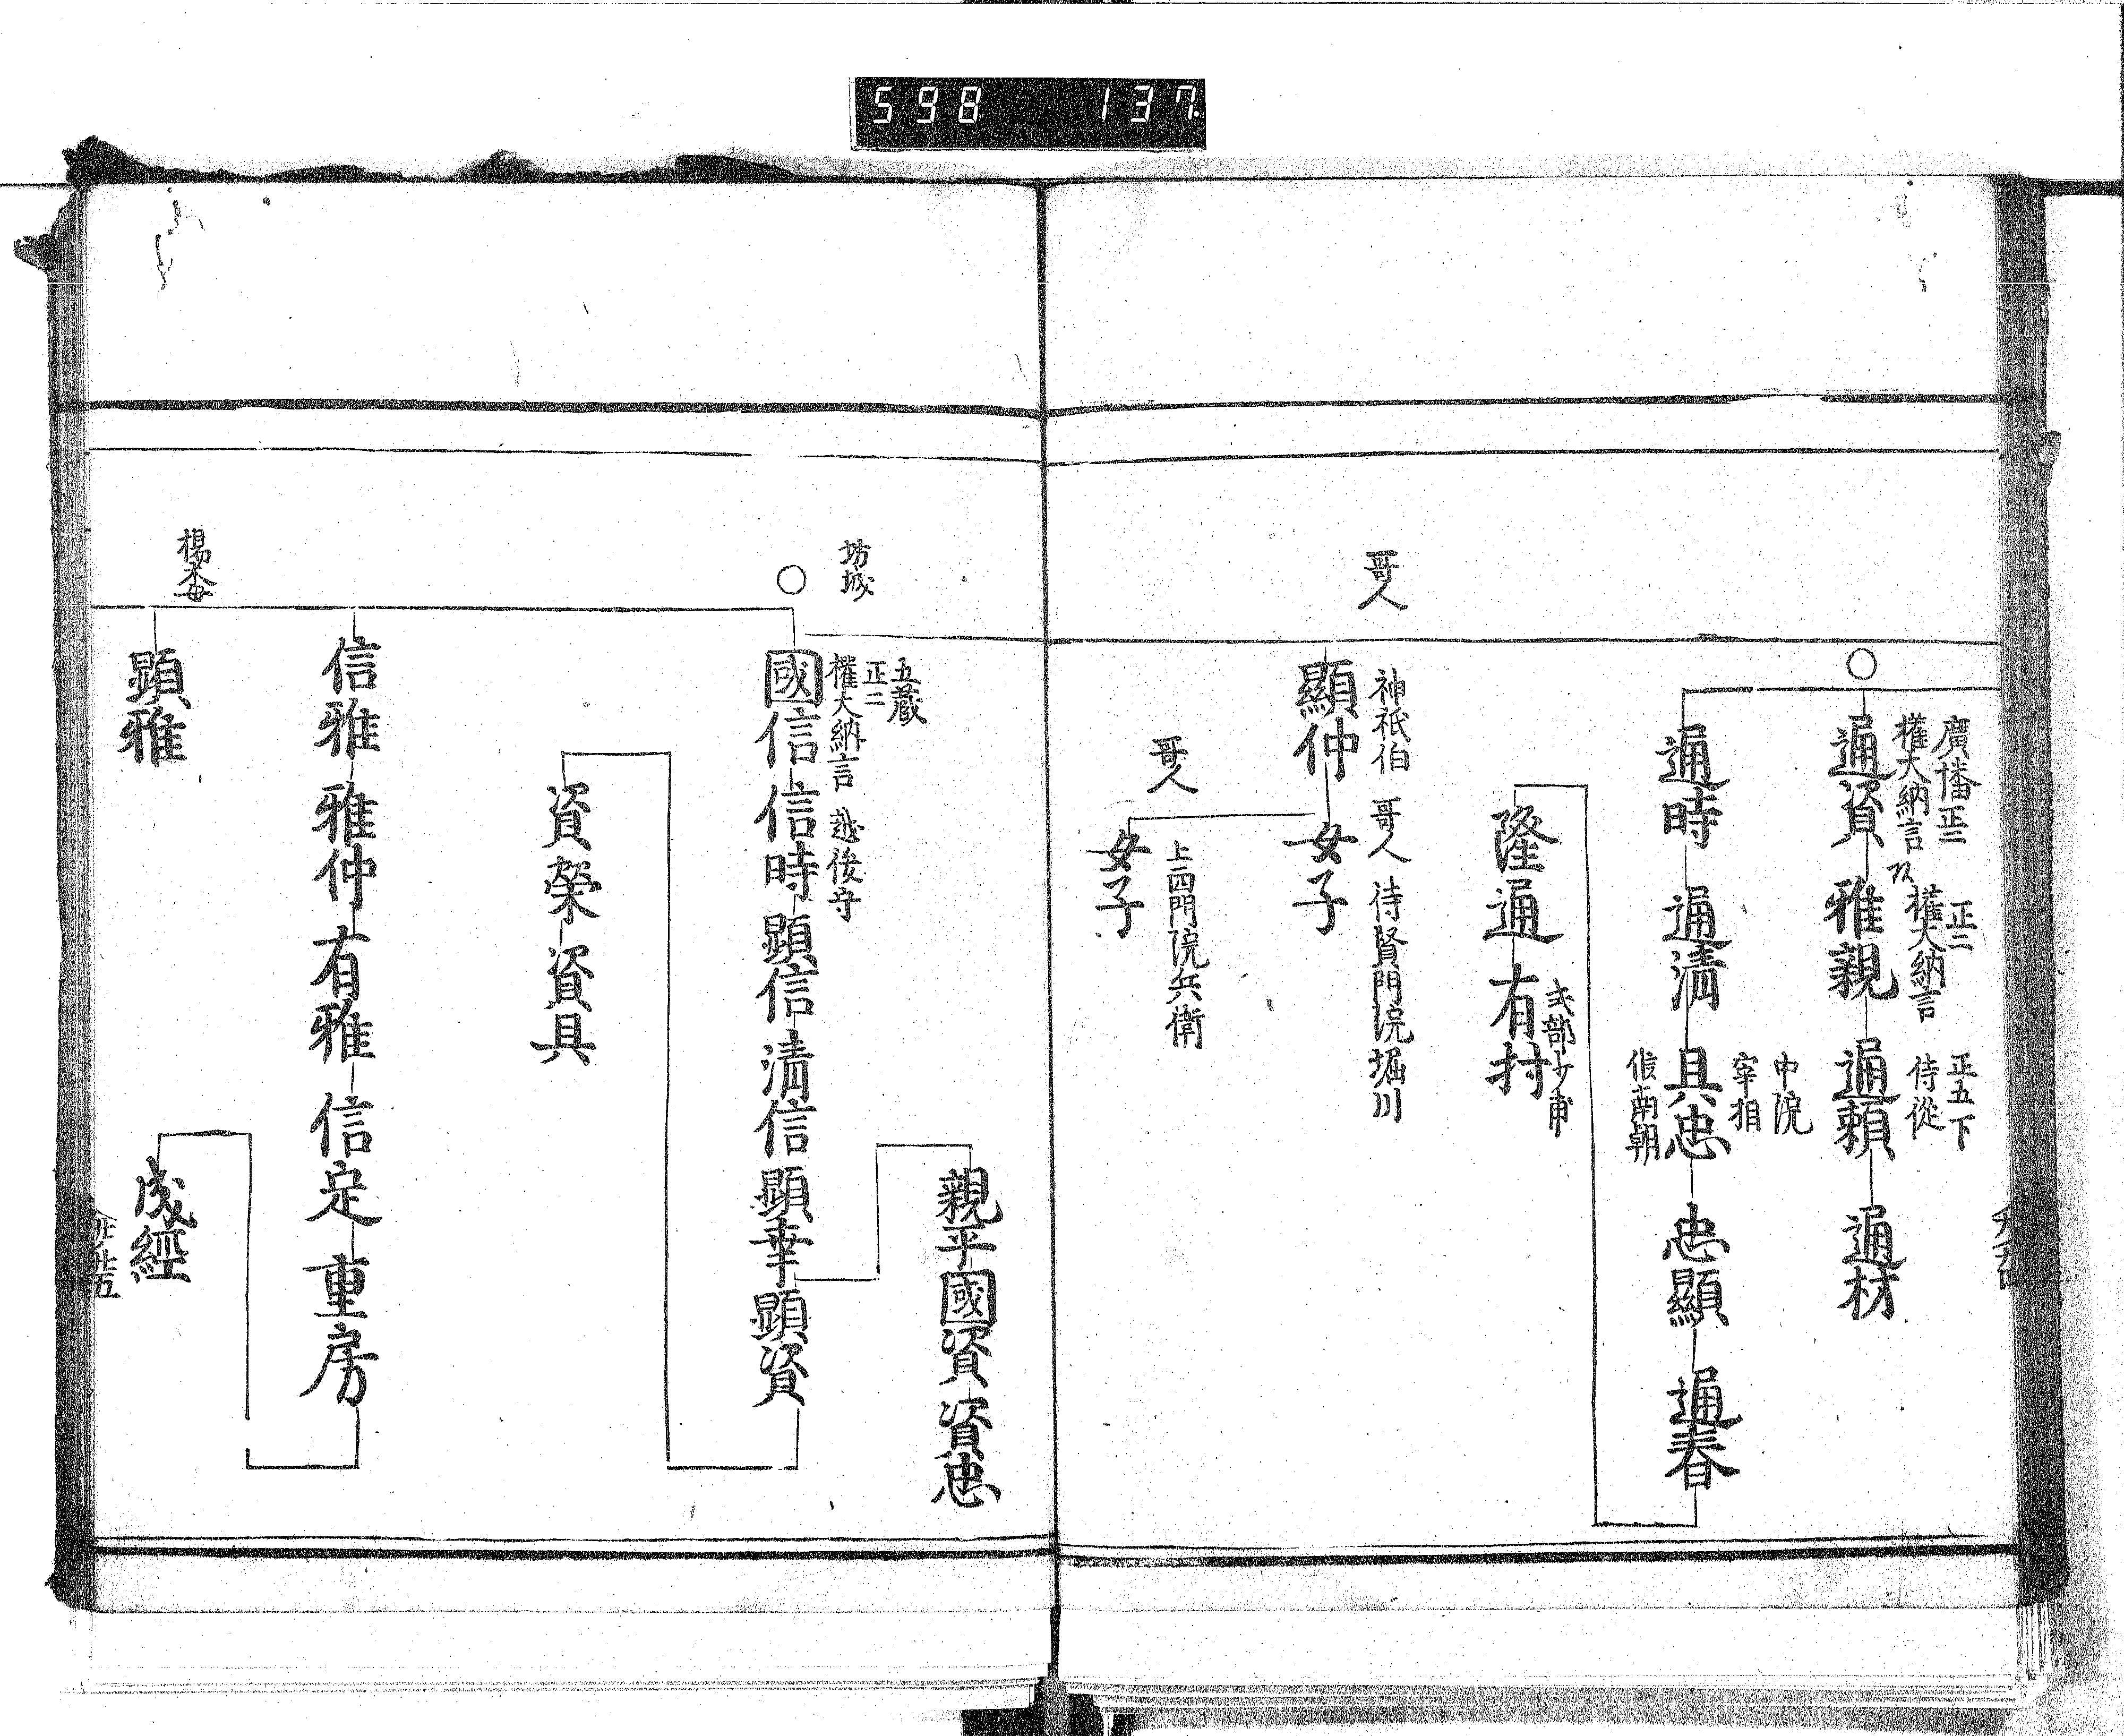 598 137
廣幡正二
權大納言
通資
正二
權大納言
雅親
正五下
侍從
通頼
通材
通時
通清
中院
宰相
具忠
候南朝
忠顯
通春
隆通
式部少甫
有村
哥人
神祇伯
顯仲
哥人 待賢門院堀川
女子
哥人
上西門院兵衛
女子
坊城
五蔵
正二
權大納言
國信
越後守
信時
顕信
清信
顕幸
顕資
親平
國資
資忠
資榮
資具
信雅
雅仲
有雅
信定
重房
成經
楊梅
顕雅